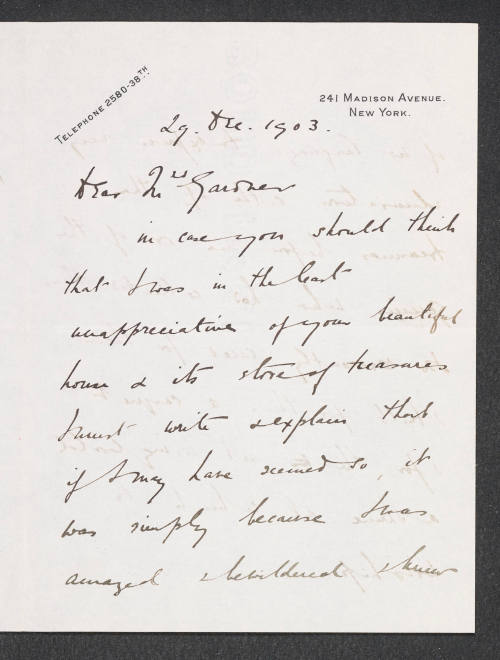 Telephone 2580-38TH.
241 Madison Avenue.
New York.
29. Dec. 1903.
Dear Mrs Gardner
in case you should think
that I was in the least
unappreciative of your beautiful
house & its store of treasures
I must write & explain that
if I may have seemed so, it
was simply because I was
amazed & bewildered & knew